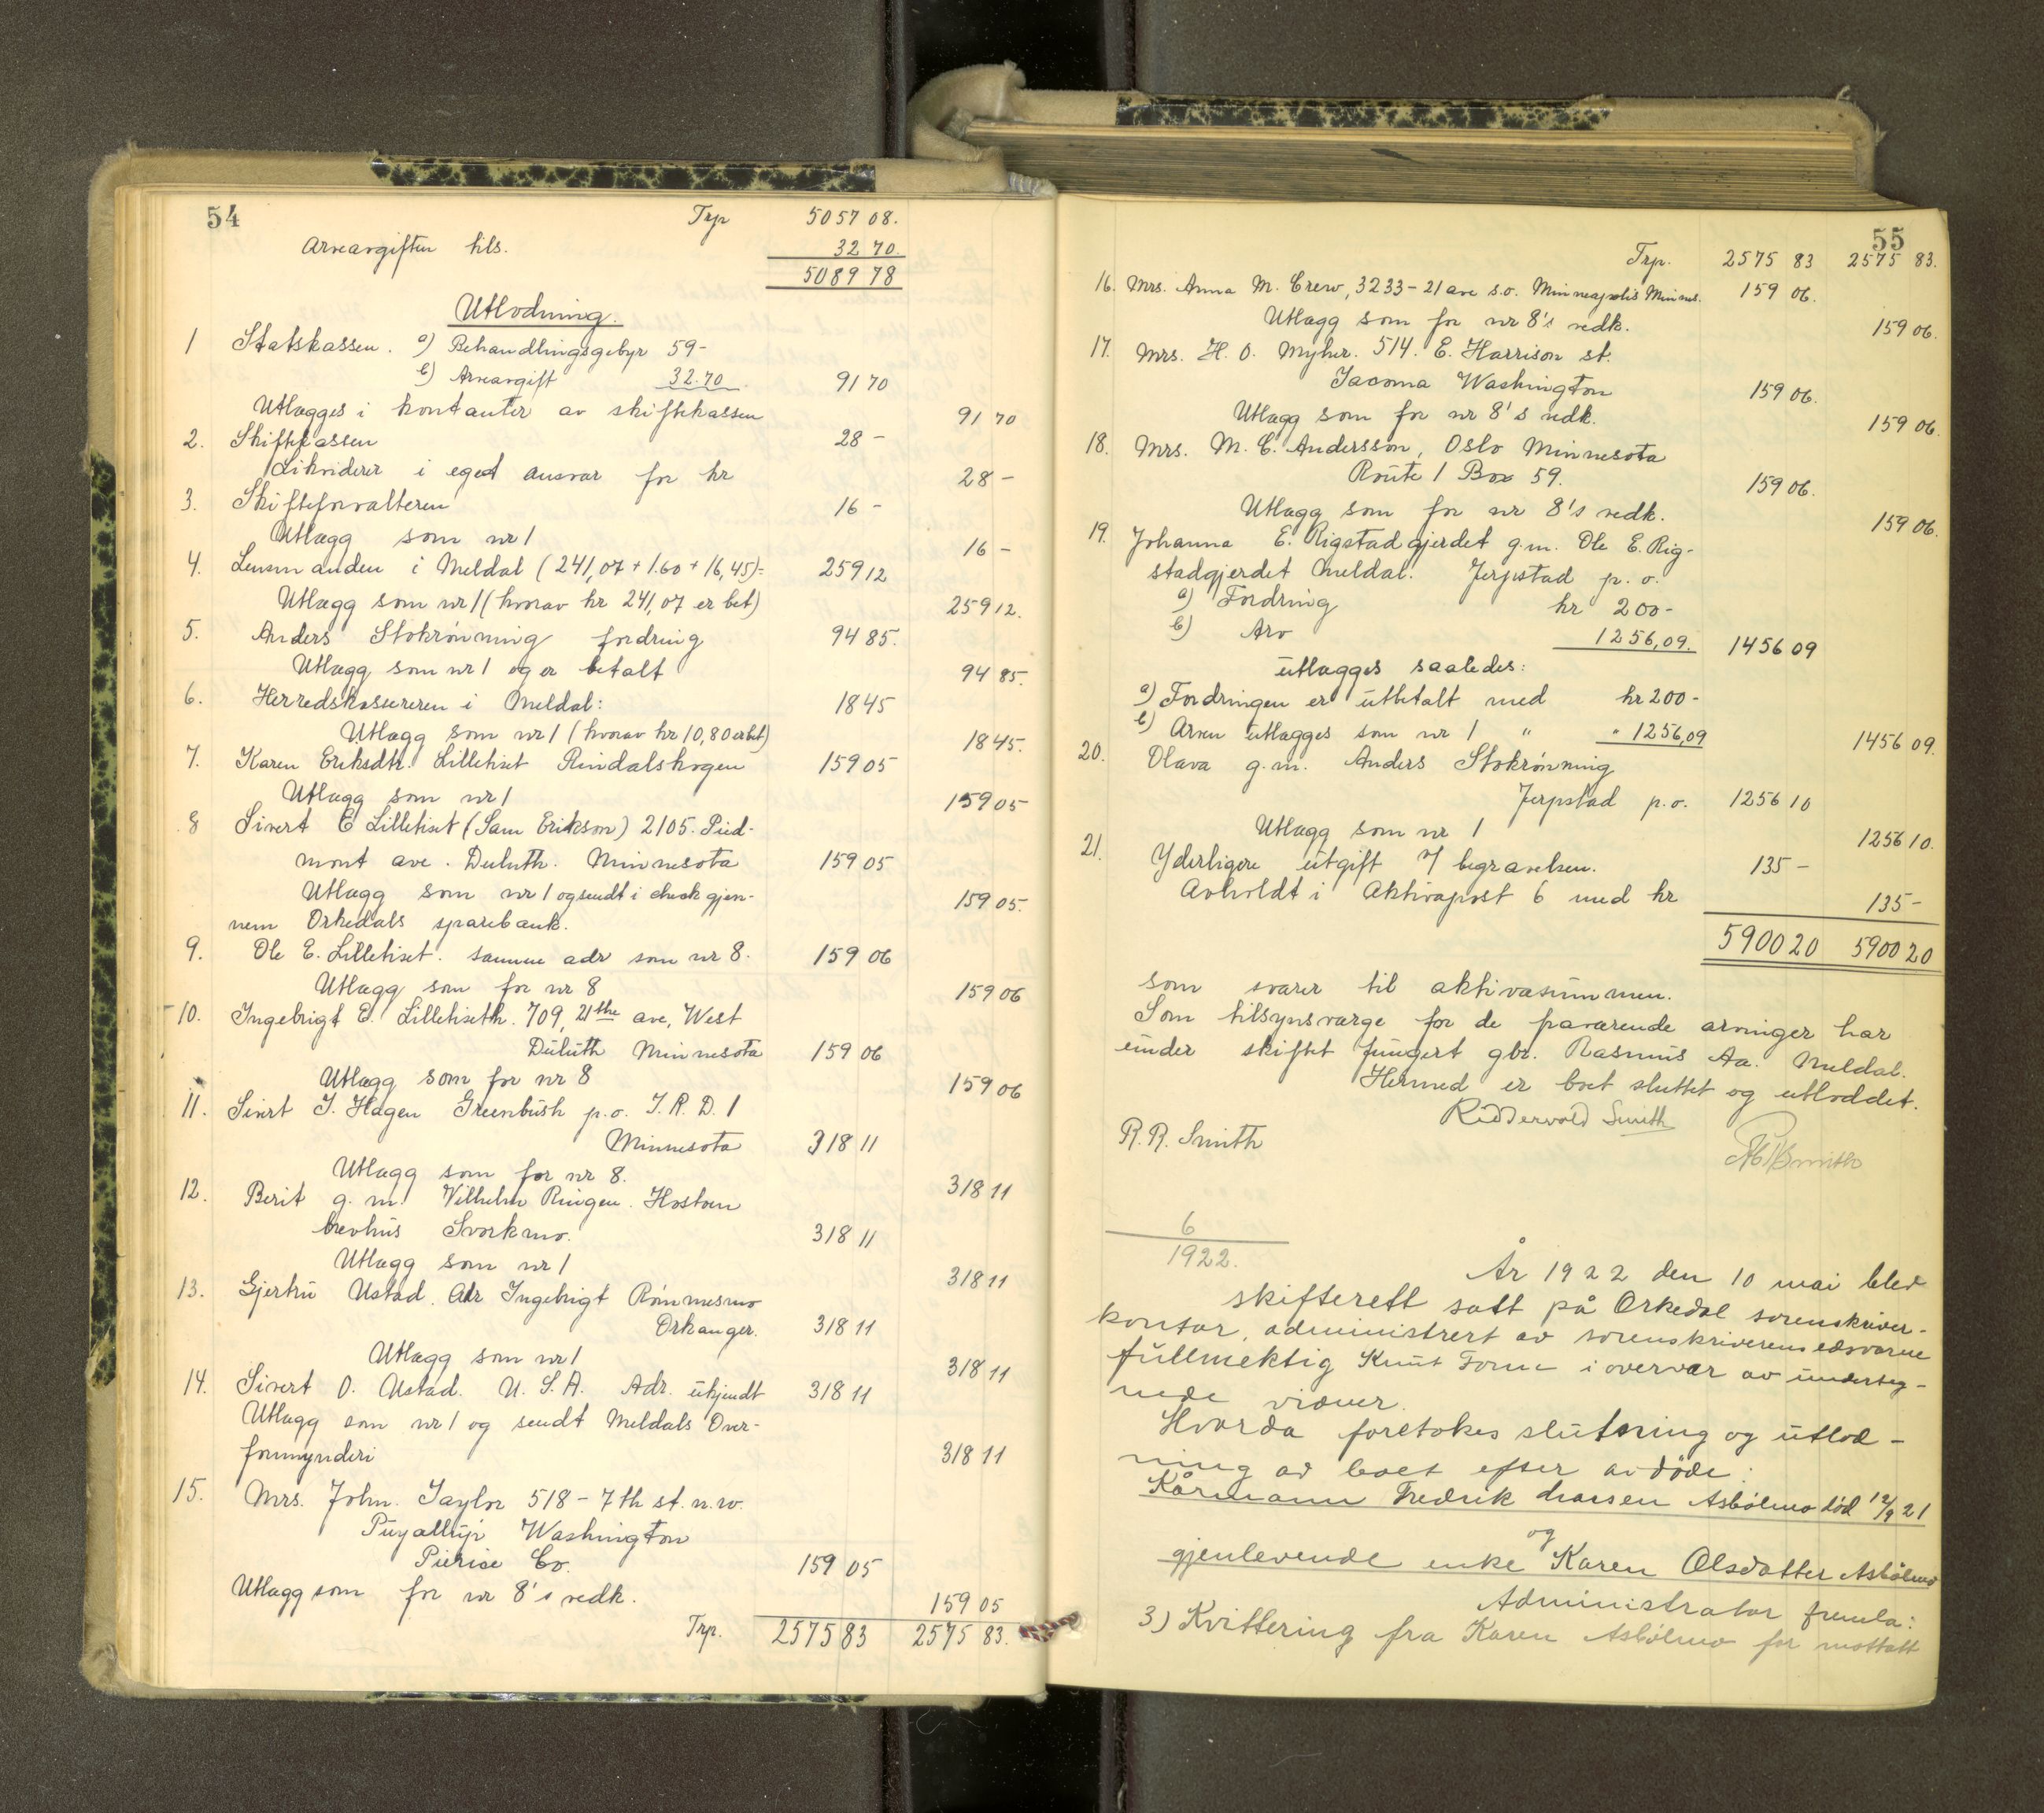 54
Trp 5057 08.
Arveavgiften tils. 32 70.
5089 78
Utlodning.
1 Statskassen. a) Behandlingsgebyr 59-
b) Arveavgift 32.70 91 70
Utlægges i kontanter av skiftekassen 91 70
2. Skiftekassen 28 -
Likviderer i eget ansvar for kr 28 -
3. Skifteforvalteren 16 -
Utlægg som nr 1 16 -
4. Lensmanden i Meldal (241,07 + 1.60 + 16,45)= 259 12
Utlægg som nr 1 (hvorav kr 241,07 er bet) 259 12.
5. Anders Stokrønning fordring 94 85.
Utlægg som nr 1 og er betalt 94 85.
6. Herredskassereren i Meldal: 18 45
Utlægg som nr 1 (hvorav kr 10,80 er bet) 18 45.
7. Karen Eriksdtr. Lilletiset Rindalskogen 159 05
Utlægg som nr 1 159 05
8 Sivert E Lilletiset (Sam Erikson) 2105. Pied-
mont ave. Duluth. Minnesota 159 05
Utlægg som nr 1 og sendt i check gjen-
nem Orkedals sparebank. 159 05.
9. Ole E. Lilletiset. samme adr som nr 8. 159 06
Utlægg som for nr 8 159 06
10. Ingebrigt E. Lilletiseth. 709, 21the ave, West
Duluth Minnesota 159 06
Utlægg som for nr 8 159 06
11. Sivert I. Hagen Greenbush p.o. I. R. D. 1
Minnesota 318 11
Utlægg som for nr 8. 318 11
12. Berit g. m. Vilhelm Ringen. Hostoen
brevhus Svorkmo. 318 11
Utlægg som nr 1 318 11
13. Gjertru Ustad. Adr Ingebrigt Rønnesmo
Orkanger. 318 11
Utlægg som nr 1 318 11
14. Sivert O. Ustad. U. S. A. Adr. ukjendt 318 11
Utlægg som nr 1 og sendt Meldals Over-
formynderi 318 11
15. Mrs. John. Taylor 518 - 7th st. n.w.
Puyallup Washington
Pierise Co. 159 05
Utlægg som for nr 8's vedk. 159 05
Trp. 2575 83 2575 83.
55
Trp. 2575 83 2575 83.
16. Mrs. Anna M. Crew, 3233 - 21 ave s.o. Minneapolis Minnes. 159 06.
Utlægg som for nr 8's vedk. 159 06.
17. Mrs. H. O. Myhr. 514. E. Harrison st.
Tacoma Washington 159 06.
Utlægg som for nr 8's vedk. 159 06.
18. Mrs. M. C. Andersson, Oslo Minnesota
Route 1 Box 59. 159 06.
Utlægg som for nr 8's vedk. 159 06.
19. Johanna E. Rigstadgjerdet g.m. Ole E. Rig-
stadgjerdet Meldal. Jerpstad p. o.
a) Fordring kr 200-
b) Arv 1256,09. 1456 09
utlægges saaledes:
a) Fordringen er utbetalt med kr 200-
b) Arven utlægges som nr 1 " " 1256,09 1456 09.
20. Olava g.m. Anders Stokrønning
Jerpstad p.o. 1256 10
Utlægg som nr 1 1256 10.
21. Yderligere utgift v/ begravelsen. 135 -
Avholdt i Aktivapost 6 med kr 135 -
5900 20 5900 20
som svarer til aktivasummen.
Som tilsynsværge for de fraværende arvinger har
under skiftet fungert gbr. Rasmus Aa. Meldal.
Hermed er boet sluttet og utloddet.
Riddervold Smith
R. R. Smith
Smith
6
1922.
År 1922 den 10 mai blev
skifterett satt på Orkedal sorenskriver-
kontor, administrert av sorenskriverens edsvorne
fullmektig Knut Forne i overvær av underteg-
nede vidner.
Hvorda foretokes slutning og utlod-
ning av boet efter avdøde:
Kårmann Fredrik Larsen Asbølmo død 12/9 21
og
gjenlevende enke Karen Olsdatter Asbølmo
Administrator fremla:
3) Kvittering fra Karen Asbølmo for mottatt